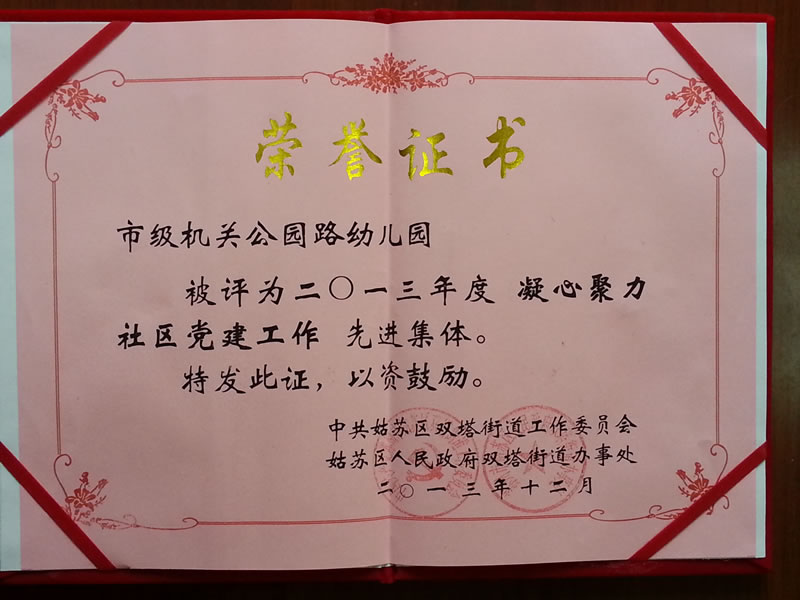 荣誉证书
市级机关公园路幼儿园
被评为二〇一三年度 凝心聚力
社区党建工作 先进集体。
特发此证，以资鼓励。
中共姑苏区双塔街道工作委员会
姑苏区人民政府双塔街道办事处
二〇一三年十二月